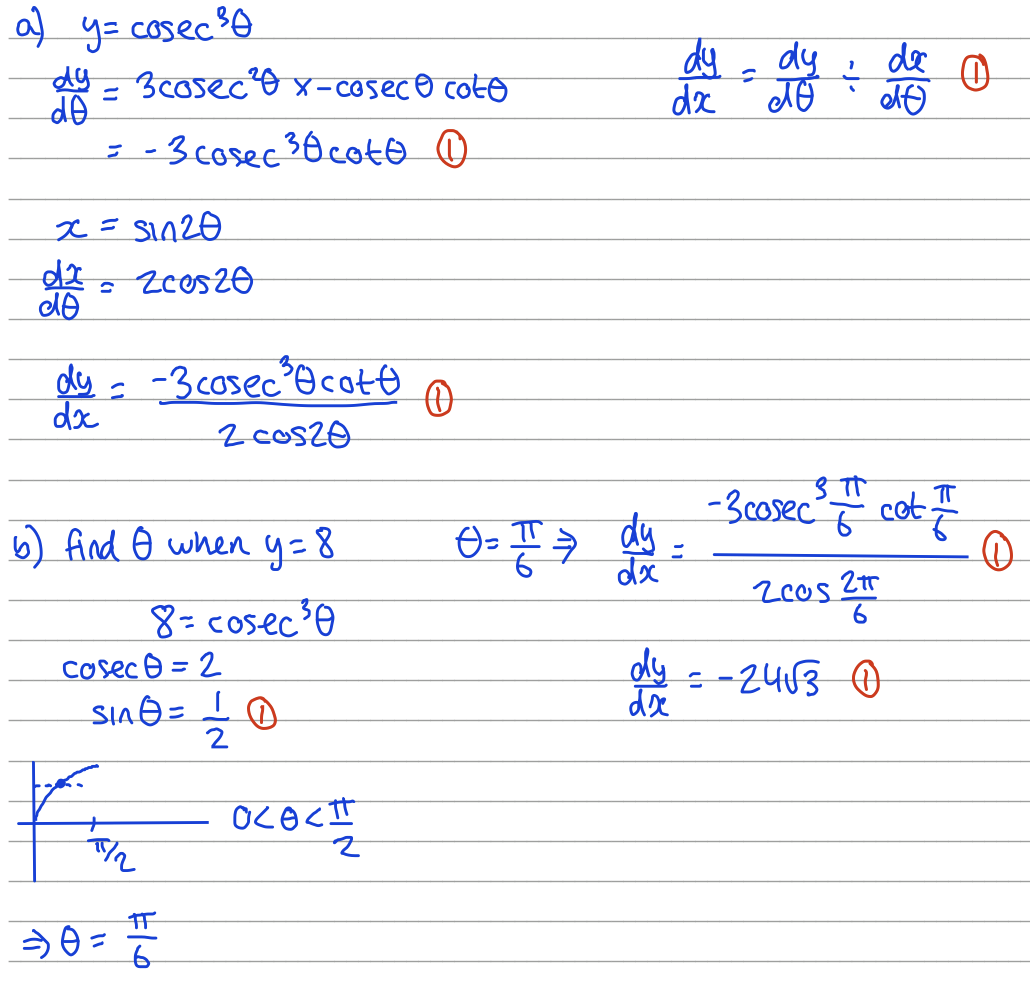 a) y = cosec³θ
dy/dθ = 3cosec²θ × -cosecθ cotθ
= -3cosec³θcotθ ①
dy/dx = dy/dθ ÷ dx/dθ ①
x = sin2θ
dx/dθ = 2cos2θ
dy/dx = -3cosec³θcotθ / 2cos2θ ①
b) find θ when y = 8
8 = cosec³θ
cosecθ = 2
sinθ = 1/2 ①
π/2
0 < θ < π/2
⇒ θ = π/6
θ = π/6 ⇒ dy/dx = -3cosec³ π/6 cot π/6 / 2cos 2π/6 ①
dy/dx = -24√3 ①